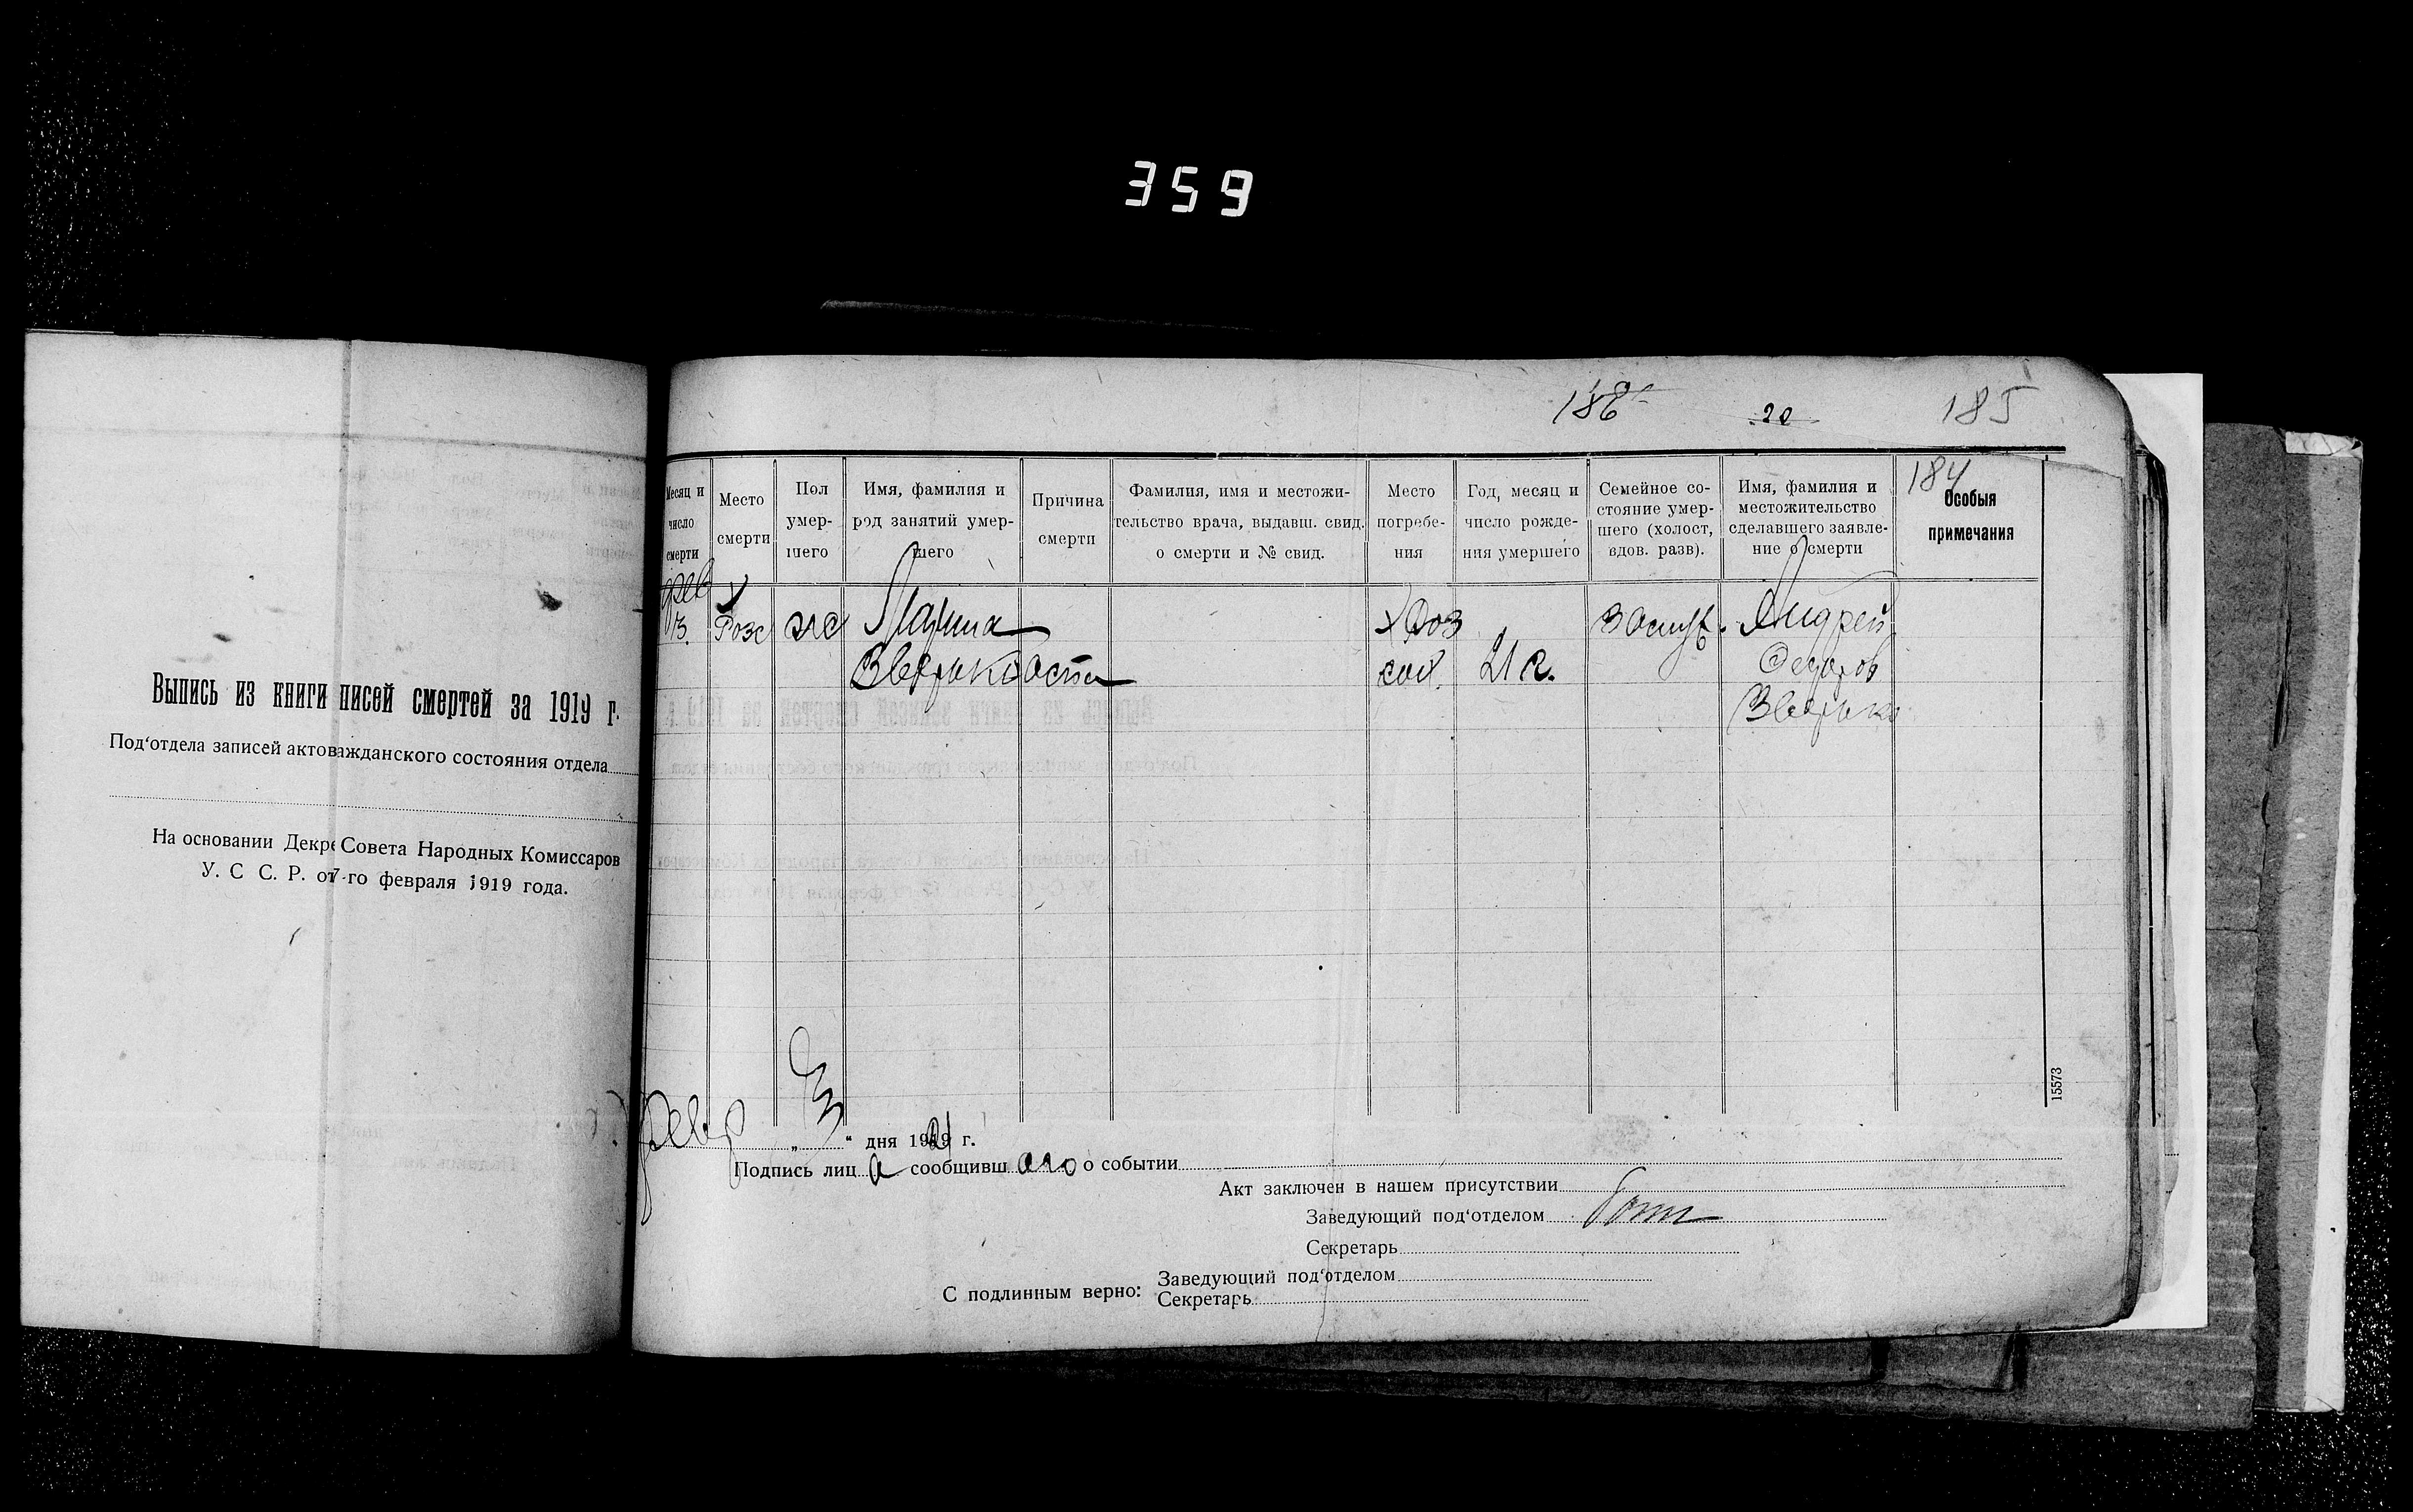 359
Выпись из книги писей смертей за 1919 г.
Под'отдела записей актов ажданского состояния отдела
На основании Декре Совета Народных Комиссаров
У. С С. Р. от 7-го февраля 1919 года.
186 20 185
184
Месяц и число смерти
Место смерти
Пол умер-
шего
Имя, фамилия и
род занятий умер-
шего
Причина
смерти
Фамилия, имя и местожи-
тельство врача, выдавш. свид.
о смерти и № свид.
Место
погребе-
ния
Год, месяц и
число рожде-
ния умершего
Семейное со-
стояние умер-
шего (холост,
вдов. разв).
Имя, фамилия и
местожительство
сделавшего заявле-
ние о смерти
Особыя
примечания
фев
3.
х
Марина
Зверяко
21 г.
Замуж.
Андрей
Федоров
Зверяко
15573
февр „ 3 " дня 1921 г.
Подпись лиц а сообщивш аго о событии
Акт заключен в нашем присутствии
Заведующий под'отделом
Секретарь
С подлинным верно:
Заведующий под'отделом
Секретарь